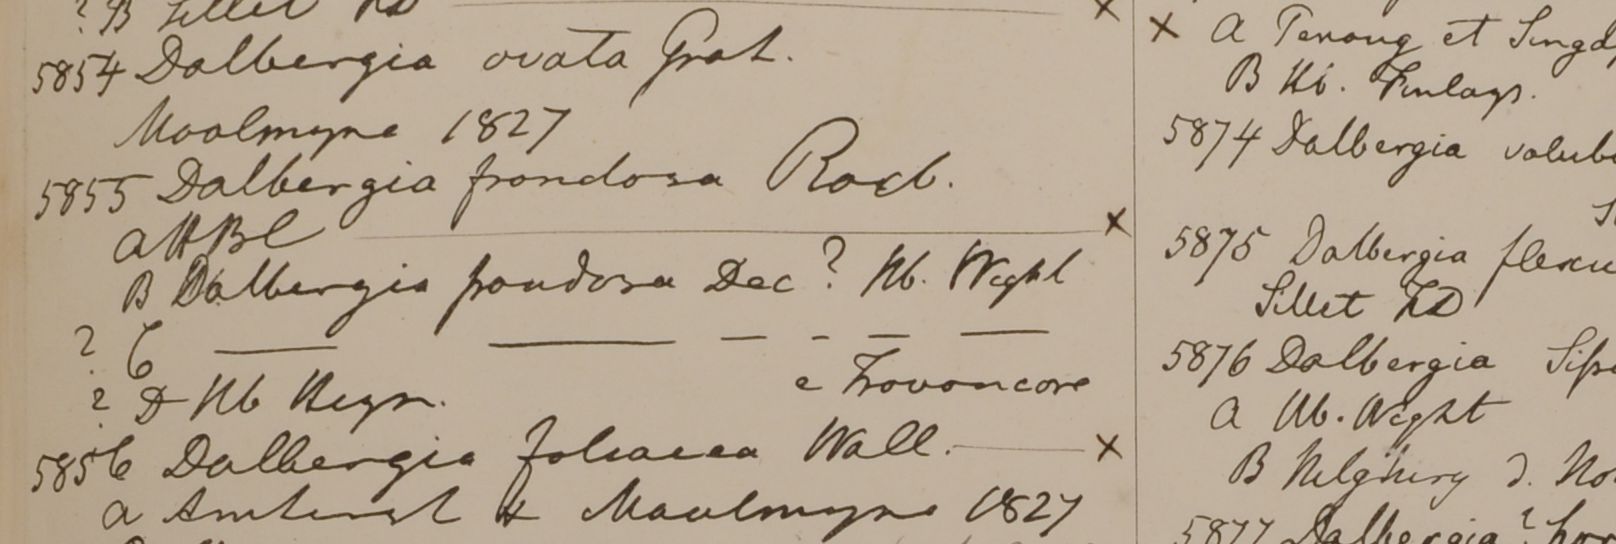 ? B Sillet FD
5854 Dalbergia ovata Grah.
Moalmyne 1827
5855 Dalbergia frondosa Roxb.
a HBC
B Dalbergia frondosa Dec? Hb. Wight
? C
? D Hb Heyn.
e Travancore
5856 Dalbergia foliacea Wall.
a Amherst & Maulmyne 1827
a Penang et Singap
B Hb. Finlays.
5874 Dalbergia volubi
5875 Dalbergia flexu
Sillet FD
5876 Dalbergia Siss
a Hb. Wight
B Nilghiry D. No
5877 Dalbergia?